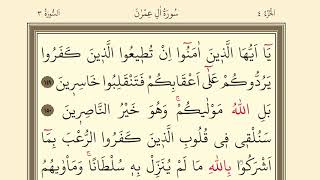 اَلْجُزْءُ ٤ سُورَةُ اٰلِ عِمْرٰنَ اَلسُّورَةُ ٣
يَٓا اَيُّهَا الَّذ۪ينَ اٰمَنُٓوا اِنْ تُط۪يعُوا الَّذ۪ينَ كَفَرُوا
يَرُدُّوكُمْ عَلٰٓى اَعْقَابِكُمْ فَتَنْقَلِبُوا خَاسِر۪ينَ ﴿١٤٩﴾
بَلِ اللّٰهُ مَوْلٰيكُمْۚ وَهُوَ خَيْرُ النَّاصِر۪ينَ ﴿١٥٠﴾
سَنُلْق۪ي ف۪ي قُلُوبِ الَّذ۪ينَ كَفَرُوا الرُّعْبَ بِمَٓا
اَشْرَكُوا بِاللّٰهِ مَا لَمْ يُنَزِّلْ بِه۪ سُلْطَانًاۚ وَمَأْوٰيهُمُ